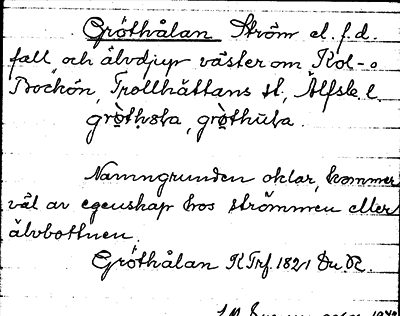 Gröthålan Ström el. f.d.
fall och älvdjup väster om Kol- o
Bockön, Trollhättans st., Älfsk. l.
Namngrunden oklar, kommer
väl av egenskap hos strömmen eller
älvbottnen.
Gröthålan KTrf. 1821 Du. R.